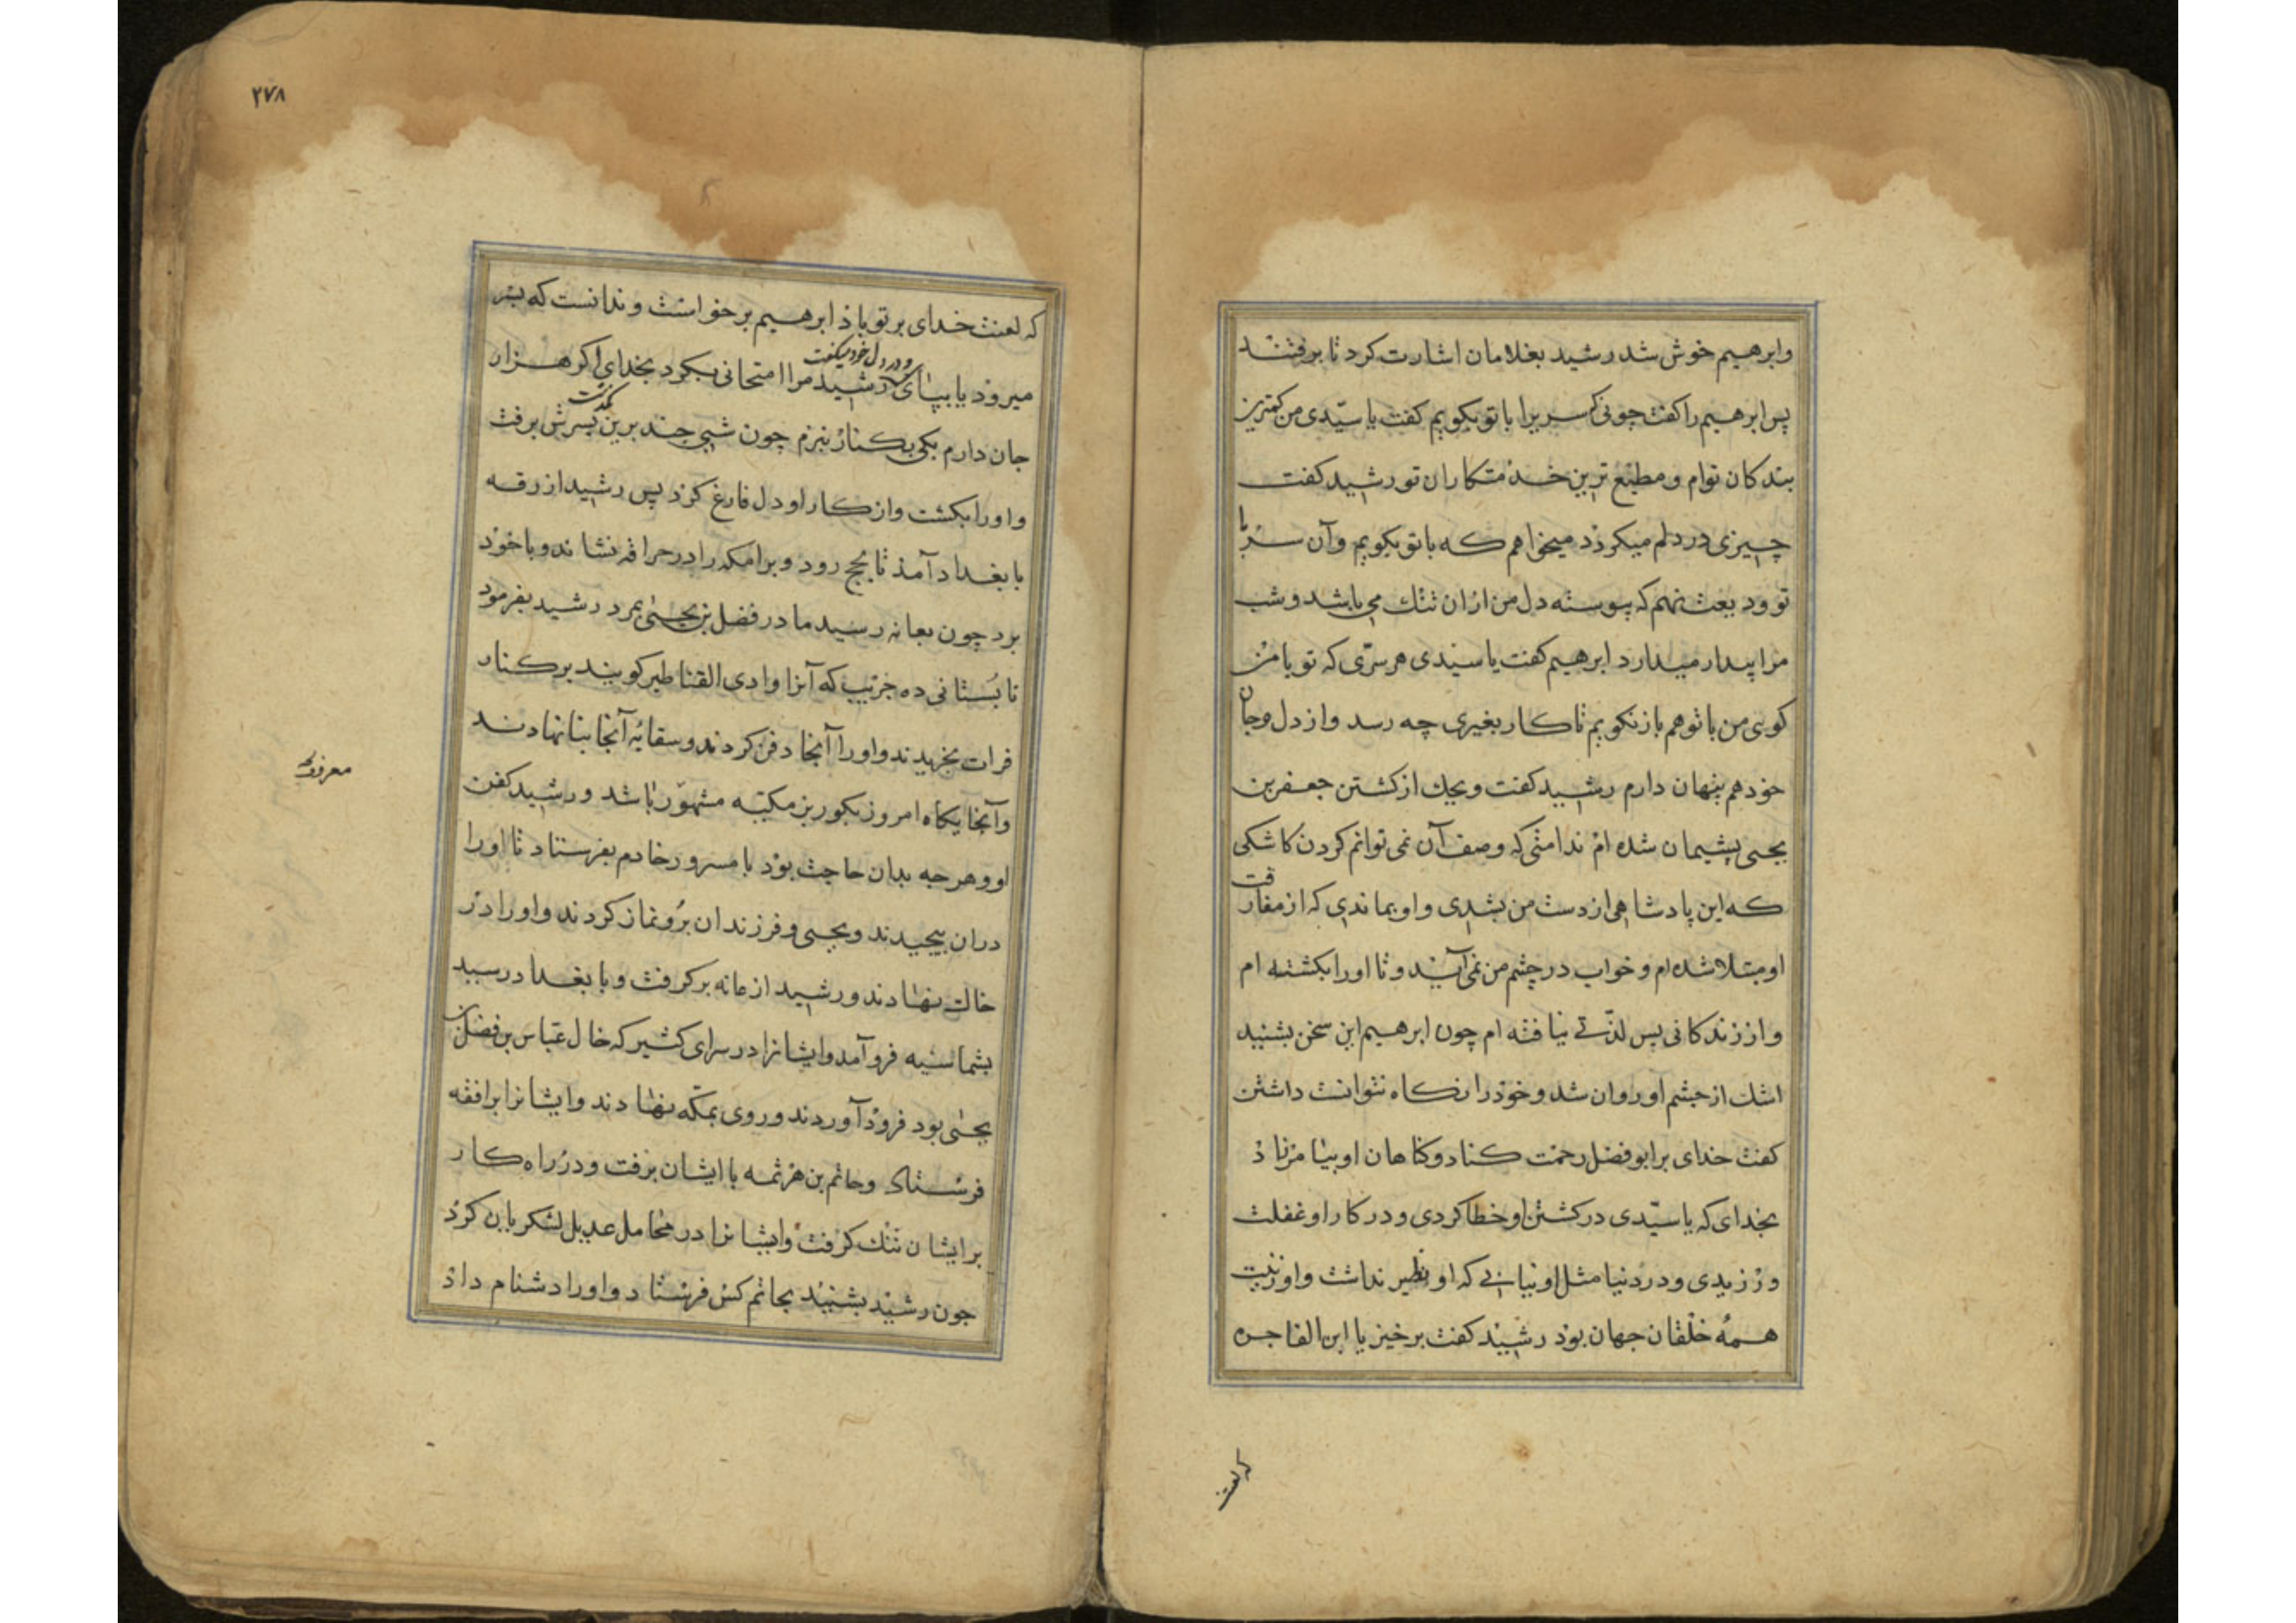 وابرهیم خوش شد رشید بغلامان اشارت کرد تا برفتند
پس ابرهیم را کفت چونی کر سریرا باتو بکویم کفت یا سیّدی من کمترین
بندکان توام و مطیع ترین خدمتکاران تو رشید کفت
چیزی در دلم میکردد میخواهم که باتو بکویم وآن سر با
تو ودیعت نهم که پیوسته دل من ازان تنک می باشد و شب
مرا بیدار میدارد ابرهیم کفت یا سیدی هر سرّی که تو با من
کویی من باتو هم بازنکویم تا کار بغیری چه رسد واز دل وجان
خود هم پنهان دارم رشید کفت ویحک از کشتن جعفر بن
یحیی پشیمان شده ام ندامتی که وصف آن نمی توانم کردن کاشکی
که این پادشاهی از دست من بشدی و او بماندی که از مفارقت
او مبتلا شده ام و خواب در چشم من نمی آید و تا اورا بکشته ام
واز زندکانی پس لذّتی نیافته ام چون ابرهیم این سخن بشنید
اشک از چشم او روان شد و خودرا نکاه نتوانست داشتن
کفت خدای بر ابوفضل رحمت کناد وکناهان او بیامرزاد
بخدای که یا سیّدی در کشتن او خطا کردی و در کار او غفلت
ورزیدی و در دنیا مثل او نیابی که او نظیر نداشت واو زینت
همهٔ خلقان جهان بود رشید کفت برخیز یا ابن الفاجره
که لعنت
۲۷۸
که لعنت خدای بر تو باذ ابرهیم برخواست و ندانست که بسر
میرود یا بپای ودر دل خود میکفت رشید مرا امتحانی بکرد بخدای اکر هزار
جان دارم یکی بکنار نبرم چون شبی چند برین کذشت پسرش برفت
واورا بکشت وازکار او دل فارغ کرد پس رشید از رقه
با بغداد آمد تا بحج رود و برامکه را در حراقه نشاند و باخود
برد چون بعانه رسید مادر فضل بن یحیی بمرد رشید بفرمود
تا بستانی ده جریب که آنرا وادی القناطیر کویند بر کنار
فرات بخریدند واورا آنجا دفن کردند وسقایهٔ آنجا بنا نهادند
وآنجایکاه امروز بکور بزمکیّه مشهور باشد ورشید کفن
او وهرچه بدان حاجت بود با مسرور خادم بفرستاد تا اورا
دران پیچیدند ویحیی وفرزندان برو نماز کردند واورا در
خاک نهادند ورشید از عانه برکرفت وبا بغداد رسید
بشماسیه فرو آمد وایشانرا در سرای کثیر که خال عبّاس بن فضل بن
یحیی بود فرود آوردند وروی بمکّه نهادند وایشانرا برافقه
فرستاد وحاتم بن هرثمه با ایشان برفت ودر راه کار
بر ایشان تنک کرفت وایشانرا در محامل عدیل لشکریان کرد
چون رشید بشنید بحاتم کس فرستاد واورا دشنام داد